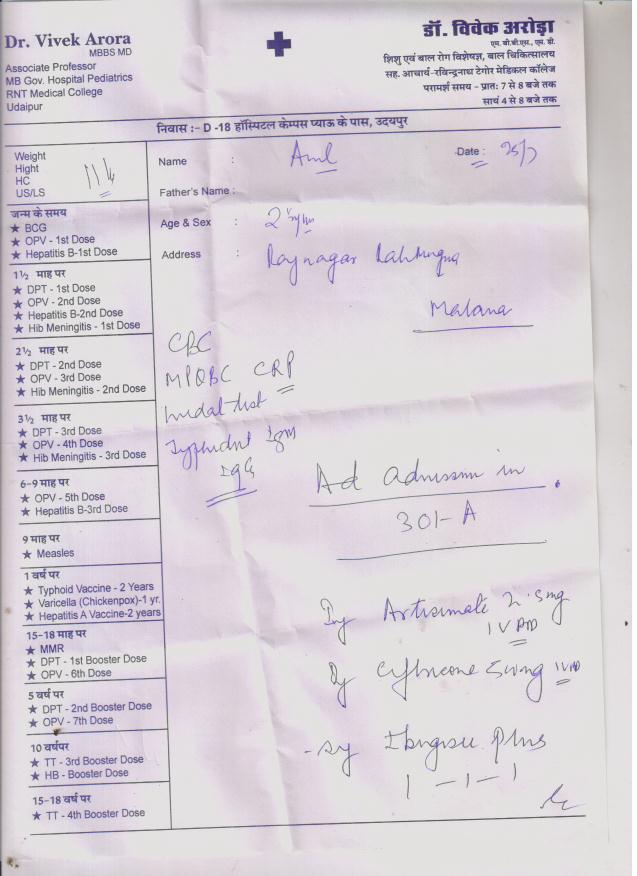 Dr. Vivek Arora
MBBS MD
Associate Professor
MB Gov. Hospital Pediatrics
RNT Medical College
Udaipur
डॉ. विवेक अरोड़ा
एम. बी.बी.एस., एम. डी.
शिशु एवं बाल रोग विशेषज्ञ, बाल चिकित्सालय
सह. आचार्य-रविन्द्रनाथ टेगोर मेडिकल कॉलेज
परामर्श समय - प्रातः 7 से 8 बजे तक
सायं 4 से 8 बजे तक
निवास :- D -18 हॉस्पिटल केम्पस प्याऊ के पास, उदयपुर
Weight
Hight
HC
US/LS
Name :
Date : 25/7
Father's Name :
Age & Sex : 2
Address : Raynagar
Malana
जन्म के समय
★ BCG
★ OPV - 1st Dose
★ Hepatitis B-1st Dose
1½ माह पर
★ DPT - 1st Dose
★ OPV - 2nd Dose
★ Hepatitis B-2nd Dose
★ Hib Meningitis - 1st Dose
2½ माह पर
★ DPT - 2nd Dose
★ OPV - 3rd Dose
★ Hib Meningitis - 2nd Dose
3½ माह पर
★ DPT - 3rd Dose
★ OPV - 4th Dose
★ Hib Meningitis - 3rd Dose
6-9 माह पर
★ OPV - 5th Dose
★ Hepatitis B-3rd Dose
9 माह पर
★ Measles
1 वर्ष पर
★ Typhoid Vaccine - 2 Years
★ Varicella (Chickenpox)-1 yr.
★ Hepatitis A Vaccine-2 years
15-18 माह पर
★ MMR
★ DPT - 1st Booster Dose
★ OPV - 6th Dose
5 वर्ष पर
★ DPT - 2nd Booster Dose
★ OPV - 7th Dose
10 वर्षपर
★ TT - 3rd Booster Dose
★ HB - Booster Dose
15-18 वर्ष पर
★ TT - 4th Booster Dose
CBC
MPQBC CRP
widal test
Typhidot IgM
IgG
Ad admission in
301-A
Inj Artisunate
IV
Inj
IV
- sy Plus
1 - 1 - 1